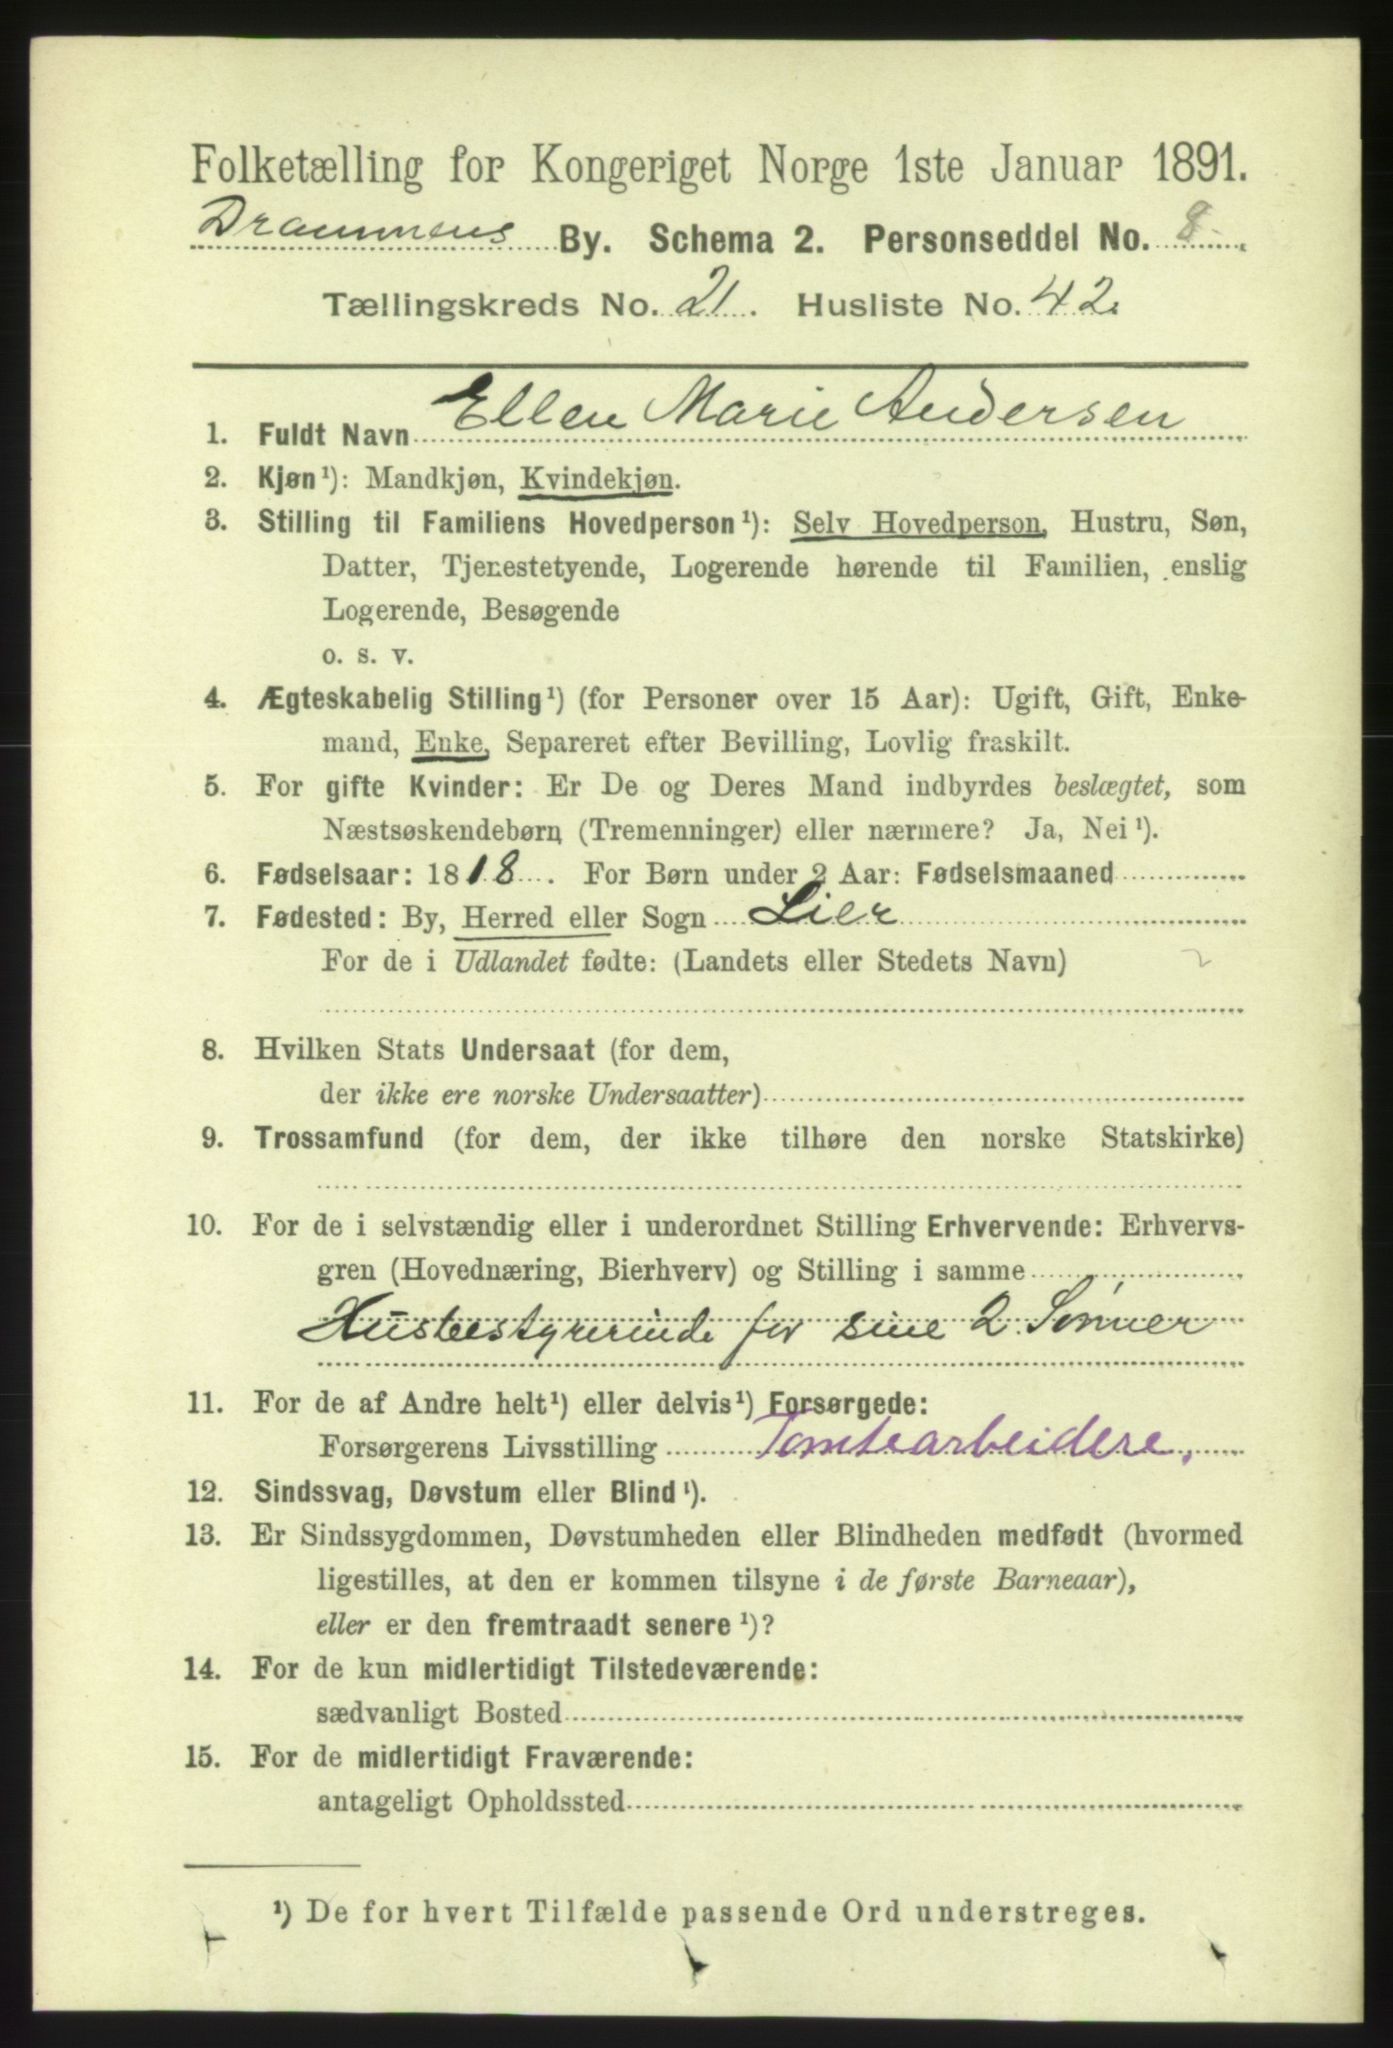 Folketælling for Kongeriget Norge 1ste Januar 1891.
Drammens By. Schema 2. Personseddel No. 8.
Tællingskreds No. 21. Husliste No. 42.
1. Fuldt Navn Ellen Marie Andersen
2. Kjøn¹): Mandkjøn, Kvindekjøn.
3. Stilling til Familiens Hovedperson¹): Selv Hovedperson, Hustru, Søn,
Datter, Tjenestetyende, Logerende hørende til Familien, enslig
Logerende, Besøgende
o. s. v.
4. Ægteskabelig Stilling¹) (for Personer over 15 Aar): Ugift, Gift, Enke-
mand, Enke, Separeret efter Bevilling, Lovlig fraskilt.
5. For gifte Kvinder: Er De og Deres Mand indbyrdes beslægtet, som
Næstsøskendebørn (Tremenninger) eller nærmere? Ja, Nei¹).
6. Fødselsaar: 1818. For Børn under 2 Aar: Fødselsmaaned
7. Fødested: By, Herred eller Sogn Lier
For de i Udlandet fødte: (Landets eller Stedets Navn) 2
8. Hvilken Stats Undersaat (for dem,
der ikke ere norske Undersaatter)
9. Trossamfund (for dem, der ikke tilhøre den norske Statskirke)
10. For de i selvstændig eller i underordnet Stilling Erhvervende: Erhvervs-
gren (Hovednæring, Bierhverv) og Stilling i samme
Husbestyrerinde for sine 2 Sønner
11. For de af Andre helt¹) eller delvis¹) Forsørgede:
Forsørgerens Livsstilling Tomtearbeidere.
12. Sindssvag, Døvstum eller Blind¹).
13. Er Sindssygdommen, Døvstumheden eller Blindheden medfødt (hvormed
ligestilles, at den er kommen tilsyne i de første Barneaar),
eller er den fremtraadt senere¹)?
14. For de kun midlertidigt Tilstedeværende:
sædvanligt Bosted
15. For de midlertidigt Fraværende:
antageligt Opholdssted
¹) De for hvert Tilfælde passende Ord understreges.